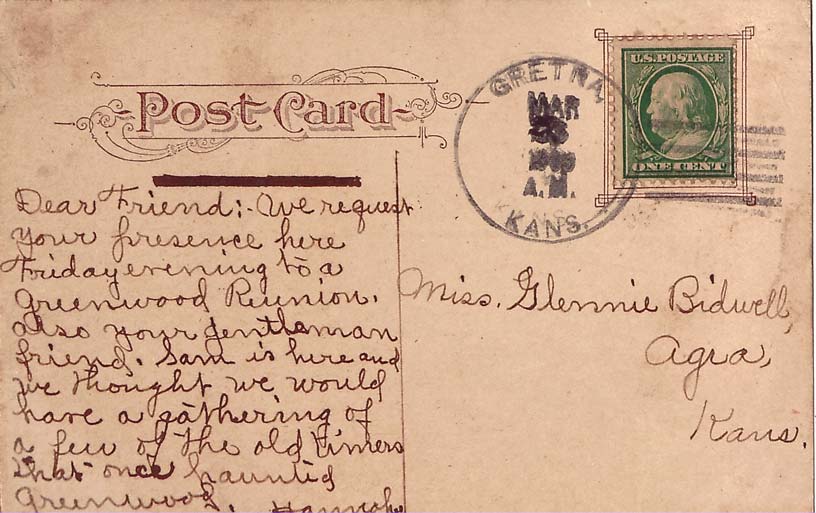 Post Card
GRETNA,
MAR
1909
A.M.
KANS.
U.S. POSTAGE
ONE CENT
Dear Friend:- We request
your presence here
Friday evening to a
Greenwood Reunion.
also your gentleman
friend. Sam is here and
we thought we would
have a gathering of
a few of the old timers
that once haunted
Greenwood.
Hannah
Miss. Glennie Bidwell,
Agra,
Kans.